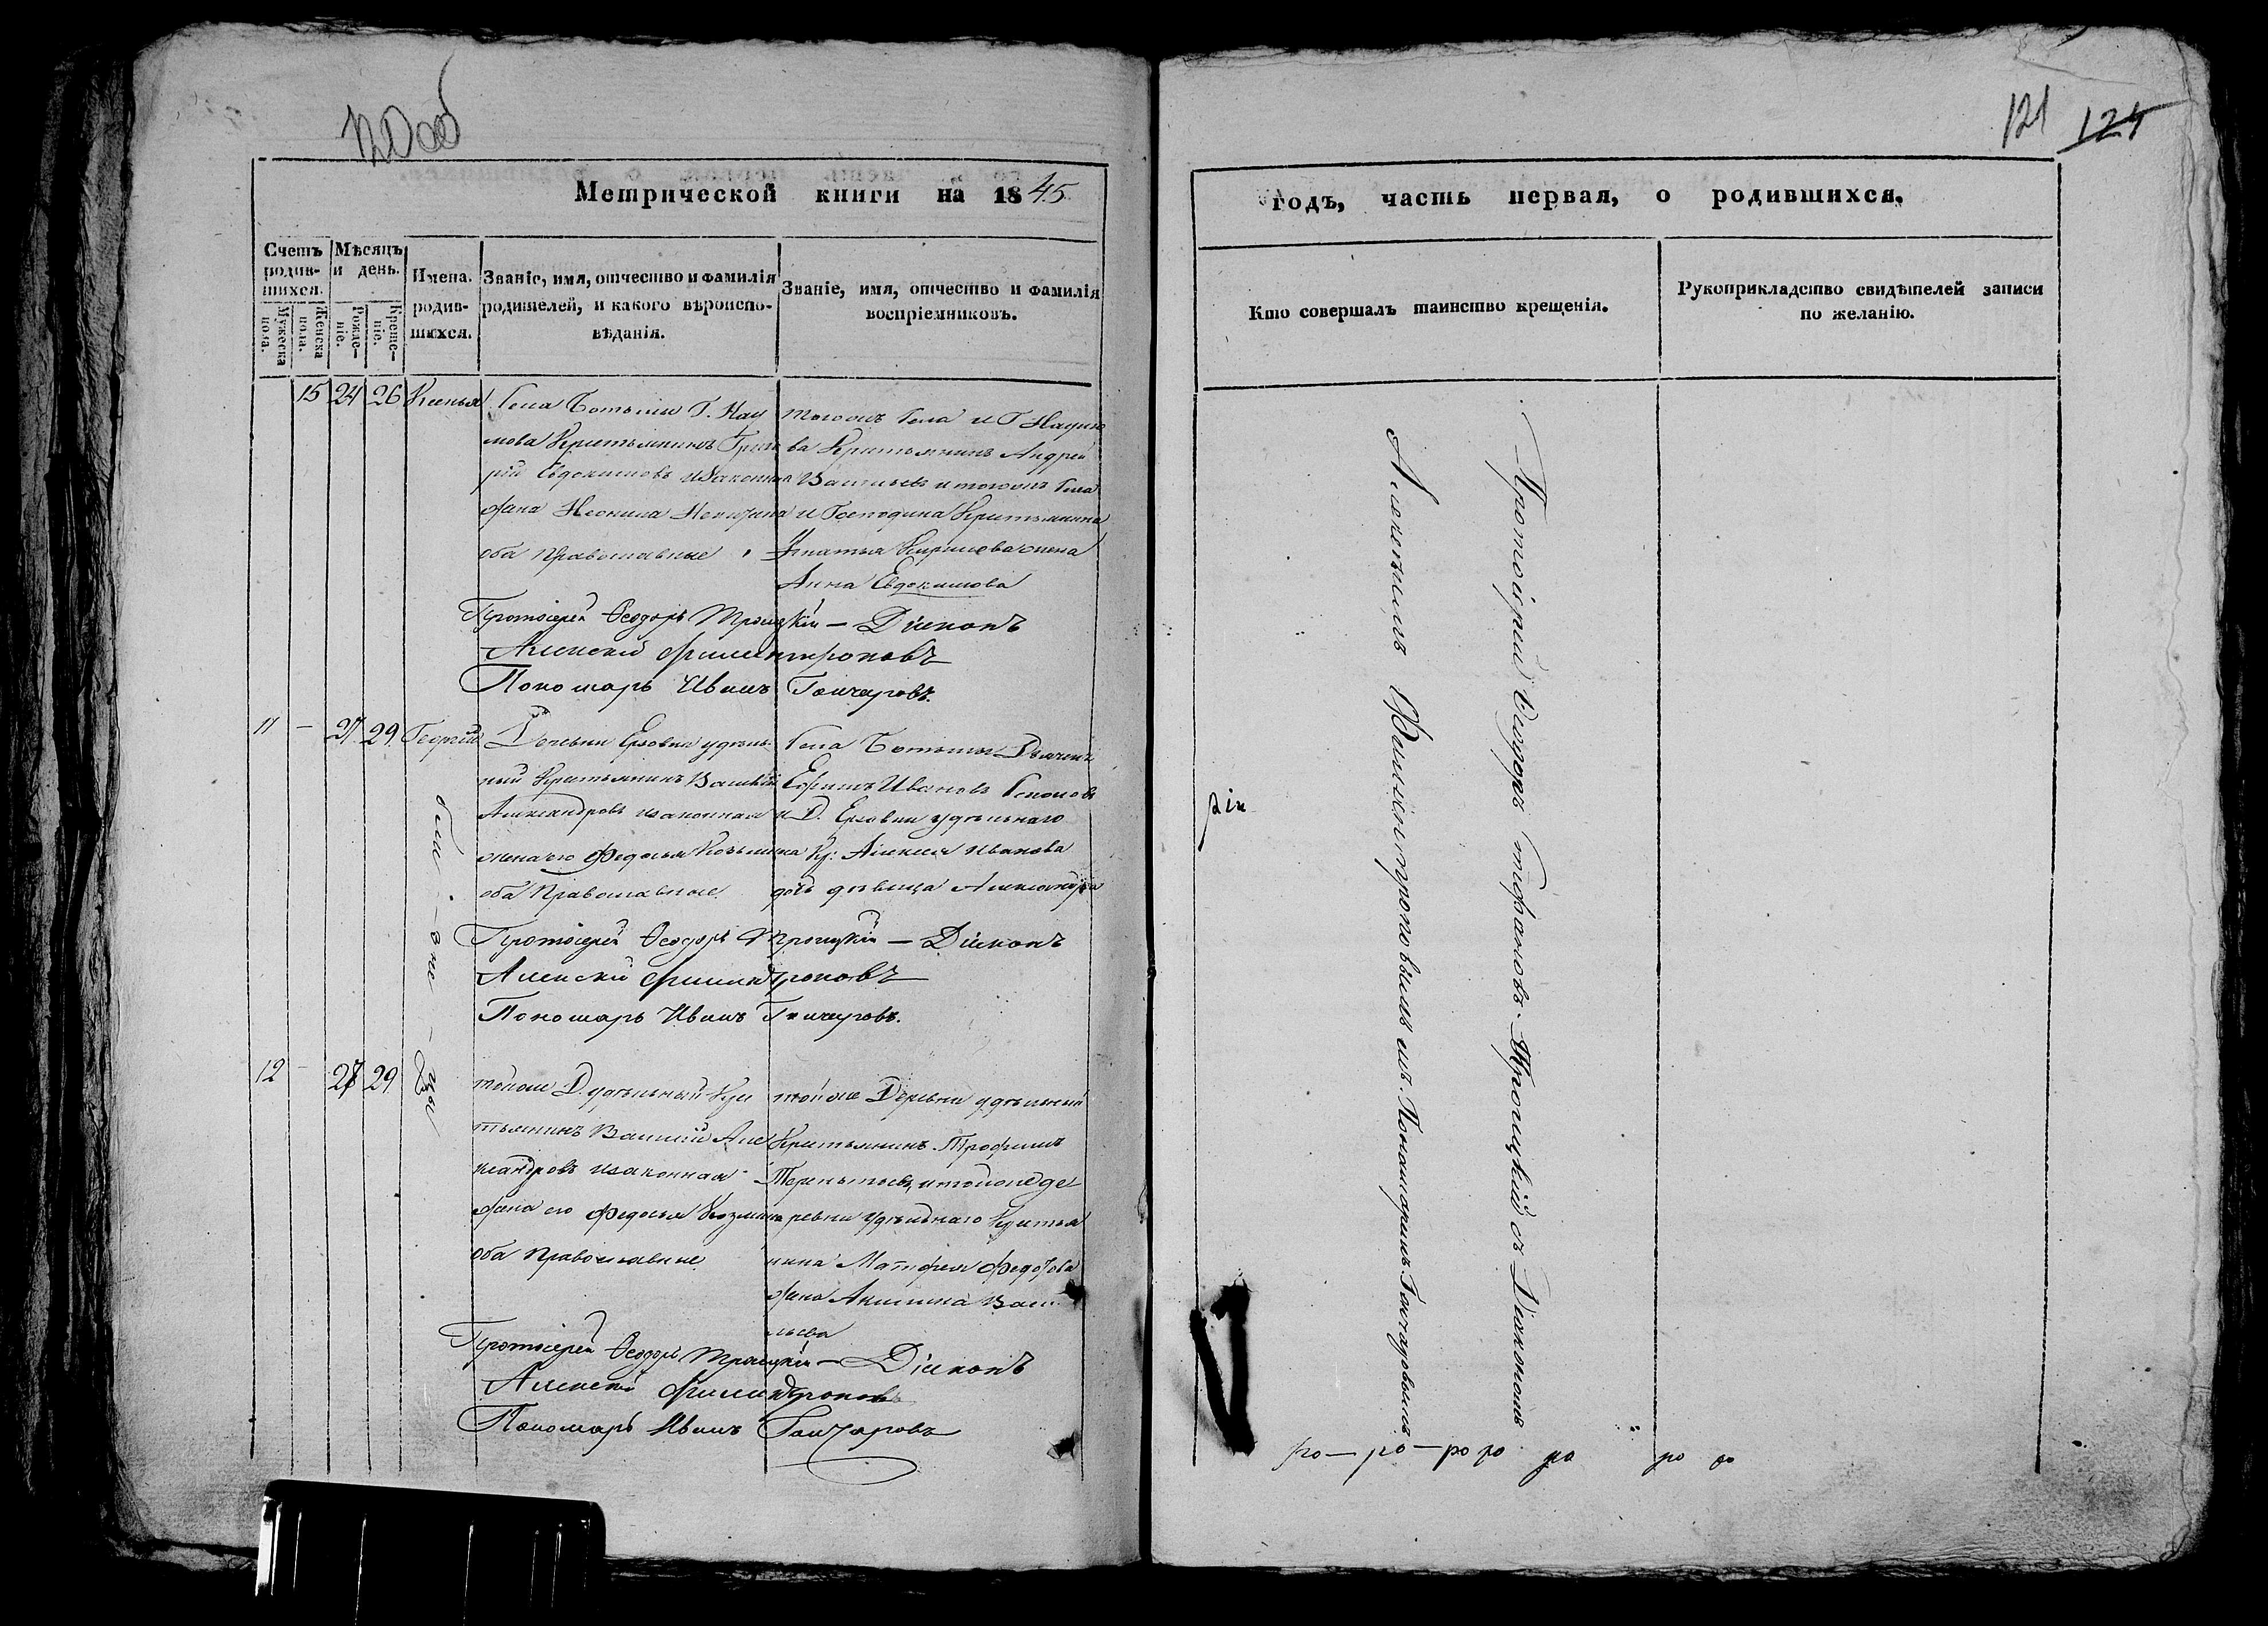 120об
Метрической книги на 1845
Счетъ родив- шихся.
Мужеска пола.
Женска пола.
Мѣсяцъ и день.
Рожде- ніе.
Креще- ніе.
Имена. родив- шихся.
Званіе, имя, отчество и фамилія
родителей, и какого вѣроиспо-
вѣданія.
Званіе, имя, отчество и фамилія
воспріемниковъ.
15 24 26 Ксенья
Села Г. Нау
мова Крестьянинъ Григо
рій Евдокимовъ и законная
жана Неонила
оба православные
тогожъ села и Г Наумо
ва Крестьянинъ Андрей
Васильевъ и тогожъ села
и Господина Крестьянина
Игнатья Кирилова жена
Анна Евдокимова
Протоіерей Ѳеодоръ Троицкій — Діаконъ
Алексей Филантроповъ
Пономарь Иванъ Гончаровъ.
11 — 27 29 Георгій
Деревни удѣль
ный Крестьянинъ Василій
Александровъ и законная
жена его Федосья Козьмина
оба Православные.
Села
Ефимъ Ивановъ
и Д. удѣльнаго
Кр: Алексея Иванова
дочь девица Александра
Протоіерей Ѳеодоръ Троицкій — Діаконъ
Алексей Филантроповъ
Пономарь Иванъ Гончаровъ.
12 — 27 29
тойже Д. удѣльный Крес
тьянинъ Василій Але
ксандровъ и законная
жана его Федосья Козмина
оба православные
тойже Деревни удѣльный
Крестьянинъ Трофимъ
Терентьевъ, и тойже де
ревни удѣльнаго Крестья
нина Матфея Федотова
жана Акилина Васи
льева
Протоіерей Ѳеодоръ Троицкій — Діаконъ
Алексей Филантроповъ
Пономарь Иванъ Гончаровъ
121 124
годъ, часть первая, о родившихся.
Кто совершалъ таинство крещенія.
Рукоприкладство свидѣтелей записи
по желанію.
Протоіерей Ѳеодоръ Стефановъ Троицкій съ Діакономъ
Алексѣемъ Филантроповымъ и Пономаремъ Гончаровымъ
ро — ро — ро ро ро ро